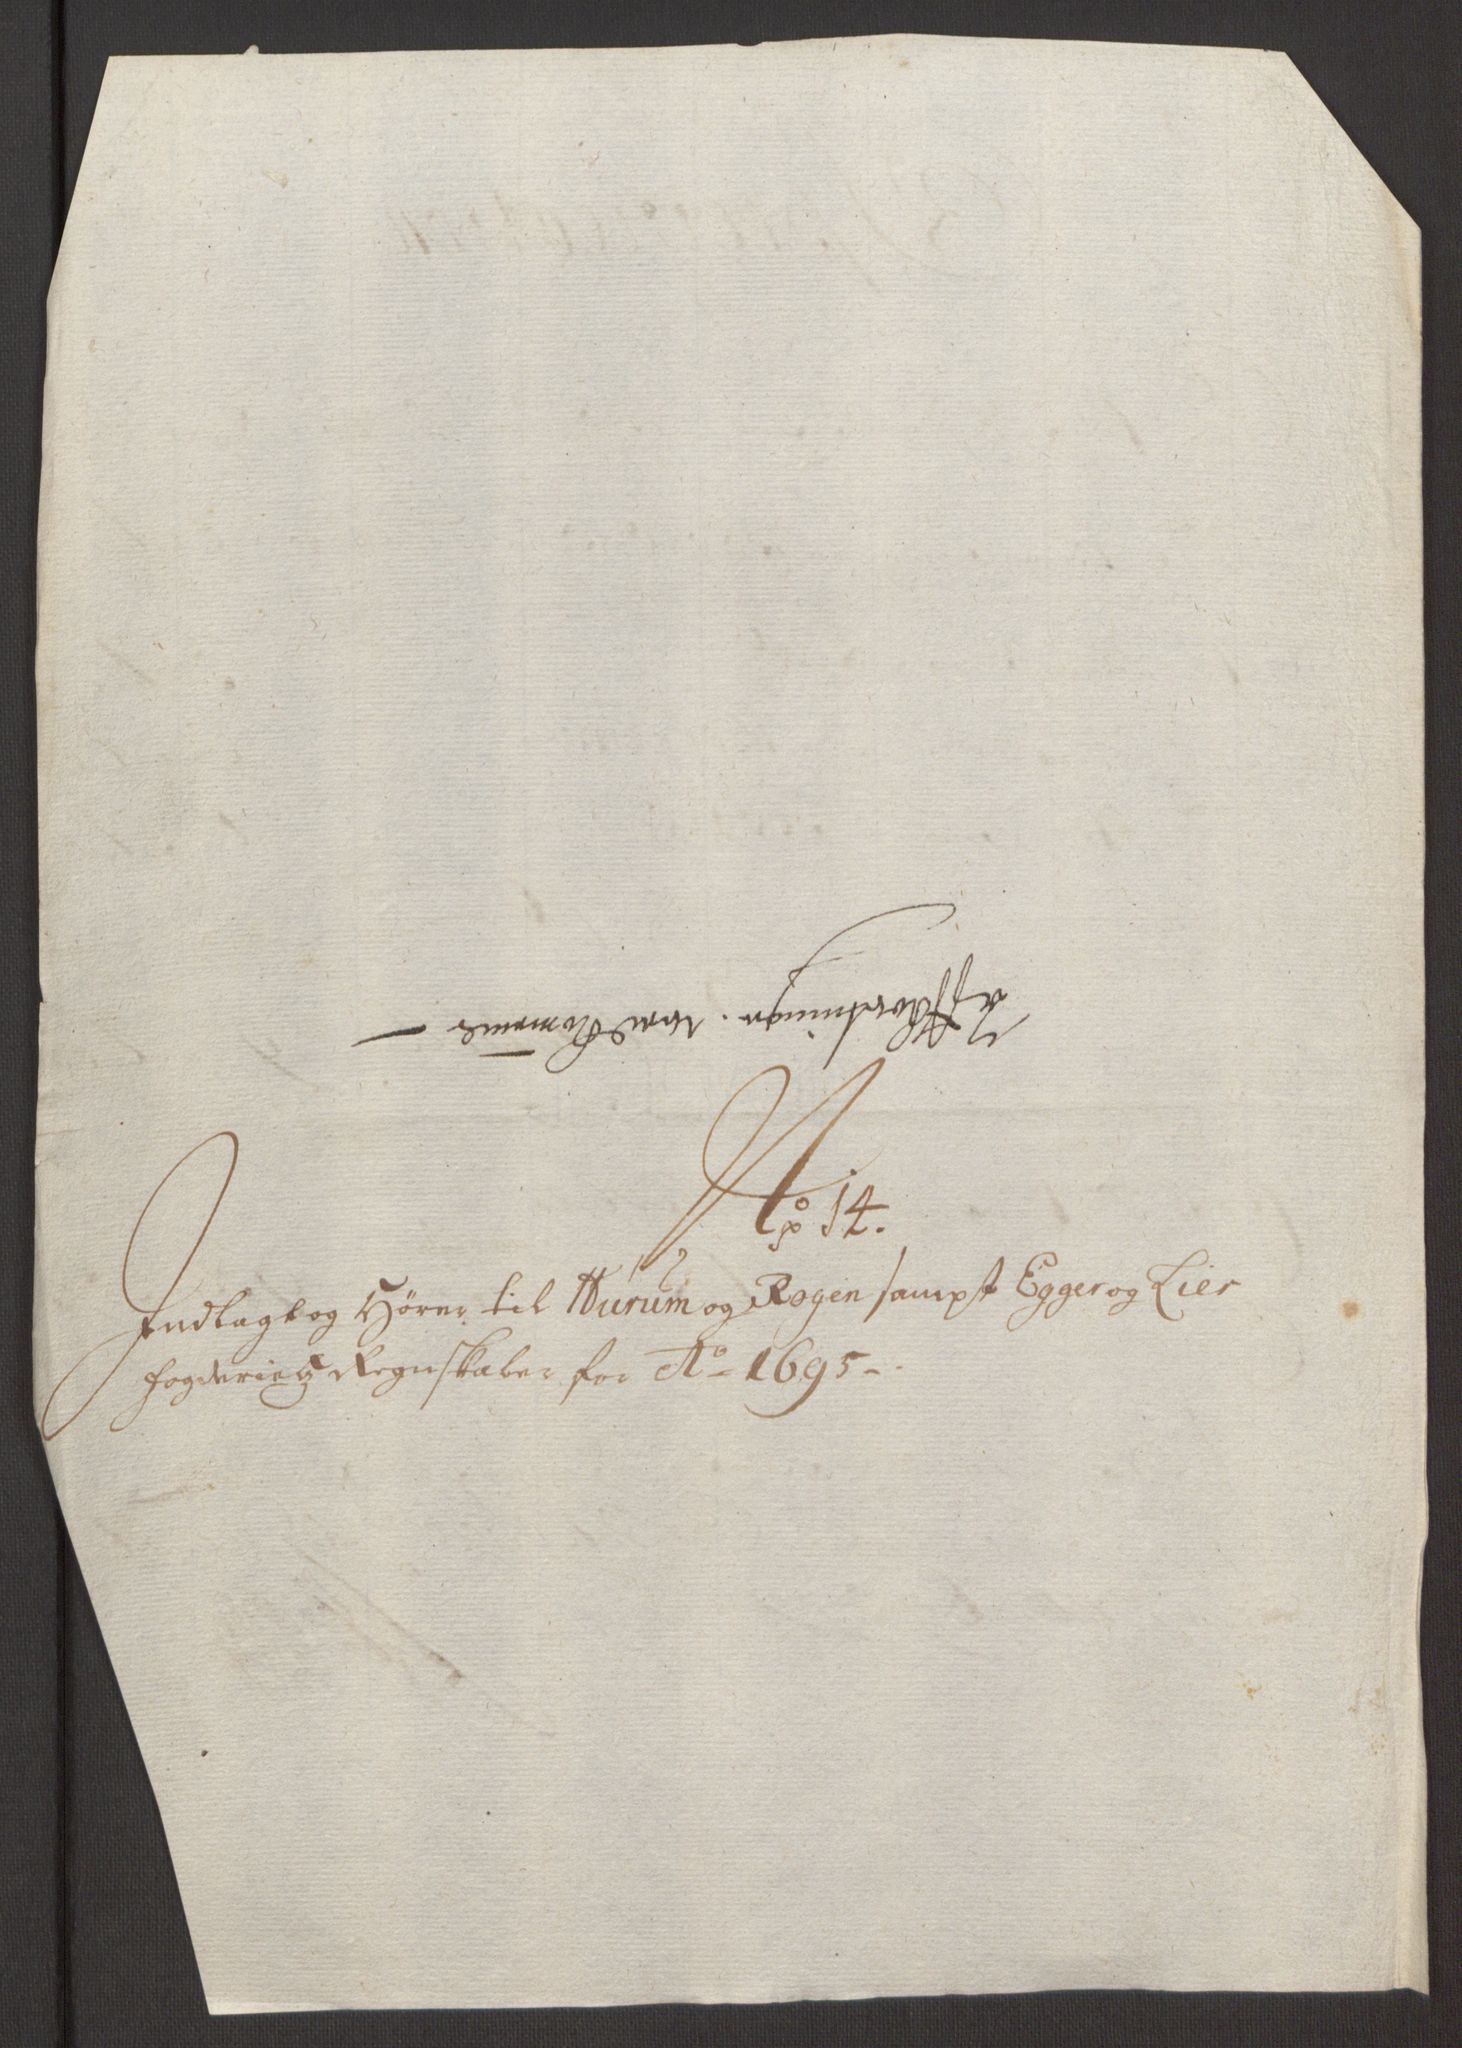 No 14.
Indlagt og Hörer til Hurum og Rogen sampt Egger og Lier
fogderietz Regnskaber for Ao 1695